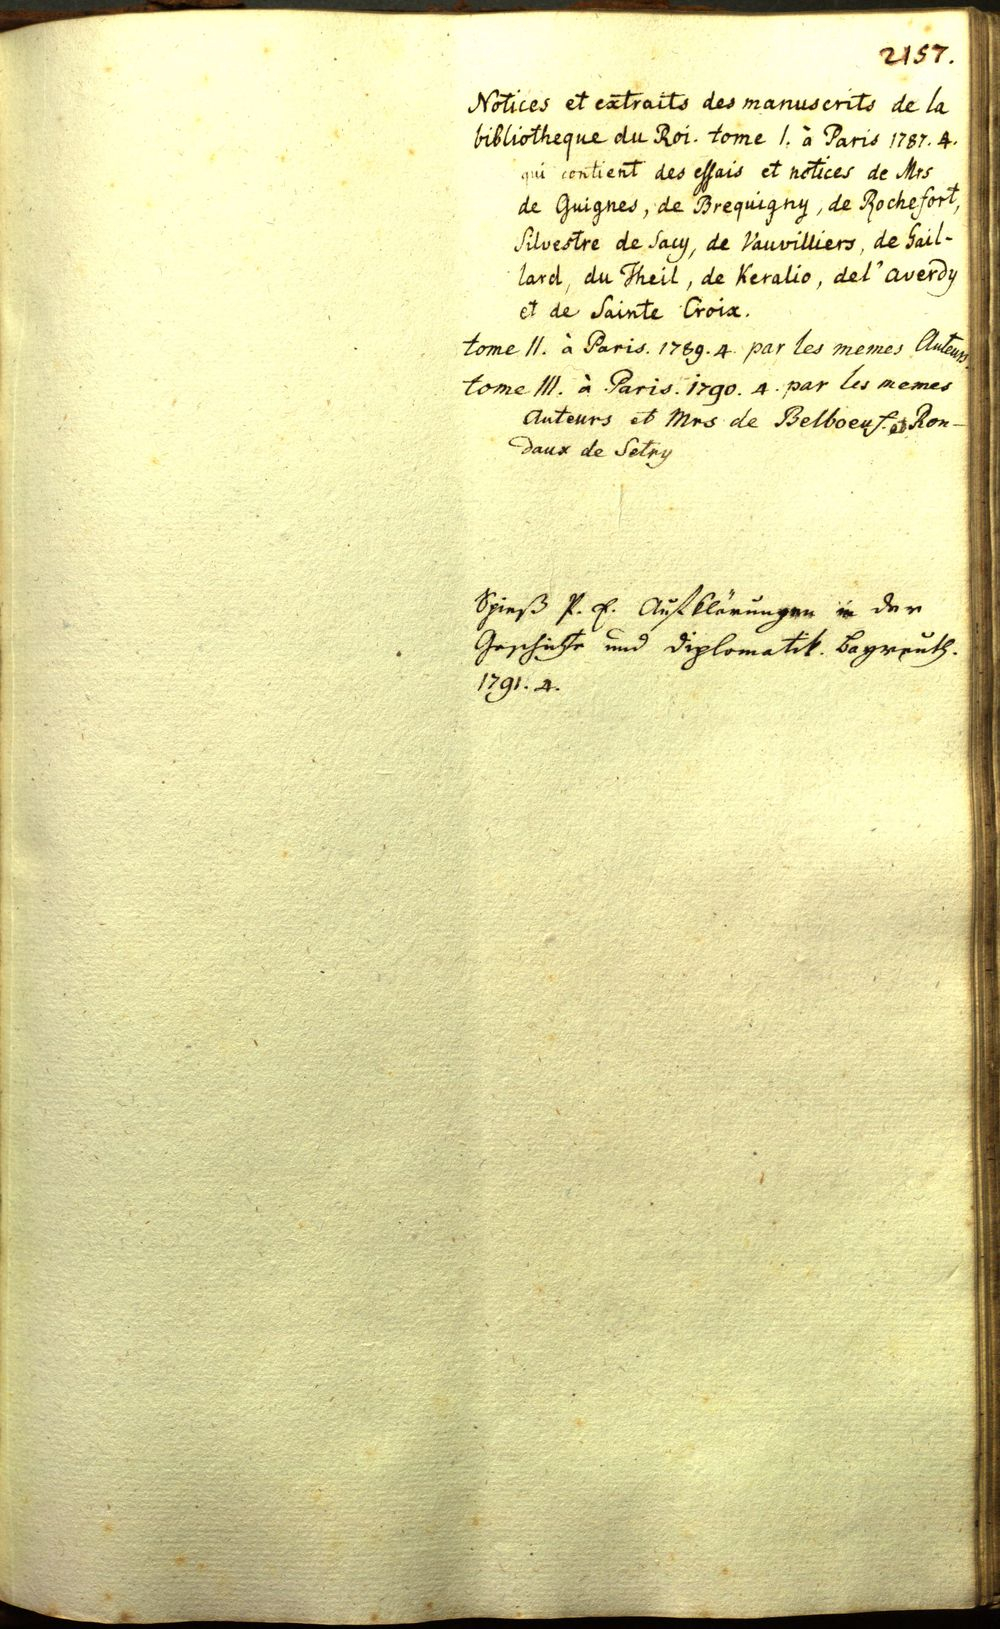 2157.
Notices et extraits des manuscrits de la
bibliotheque du Roi. tome I. à Paris 1787. 4.
qui contient des essais et notices de Mrs
de Guignes, de Brequigny, de Rochefort,
Silvestre de Sacy, de Vauvilliers, de Gail-
lard, du Theil, de Keralio, del'averdy
et de Sainte Croix.
tome II. à Paris. 1789. 4. par les memes Auteurs.
tome III. à Paris. 1790. 4. par les memes
Auteurs et Mrs de Belboeuf. et Ron-
daux de Setry
Spieß P. E. Aufklärungen in der
Geschichte und Diplomatik. Bayreuth.
1791. 4.